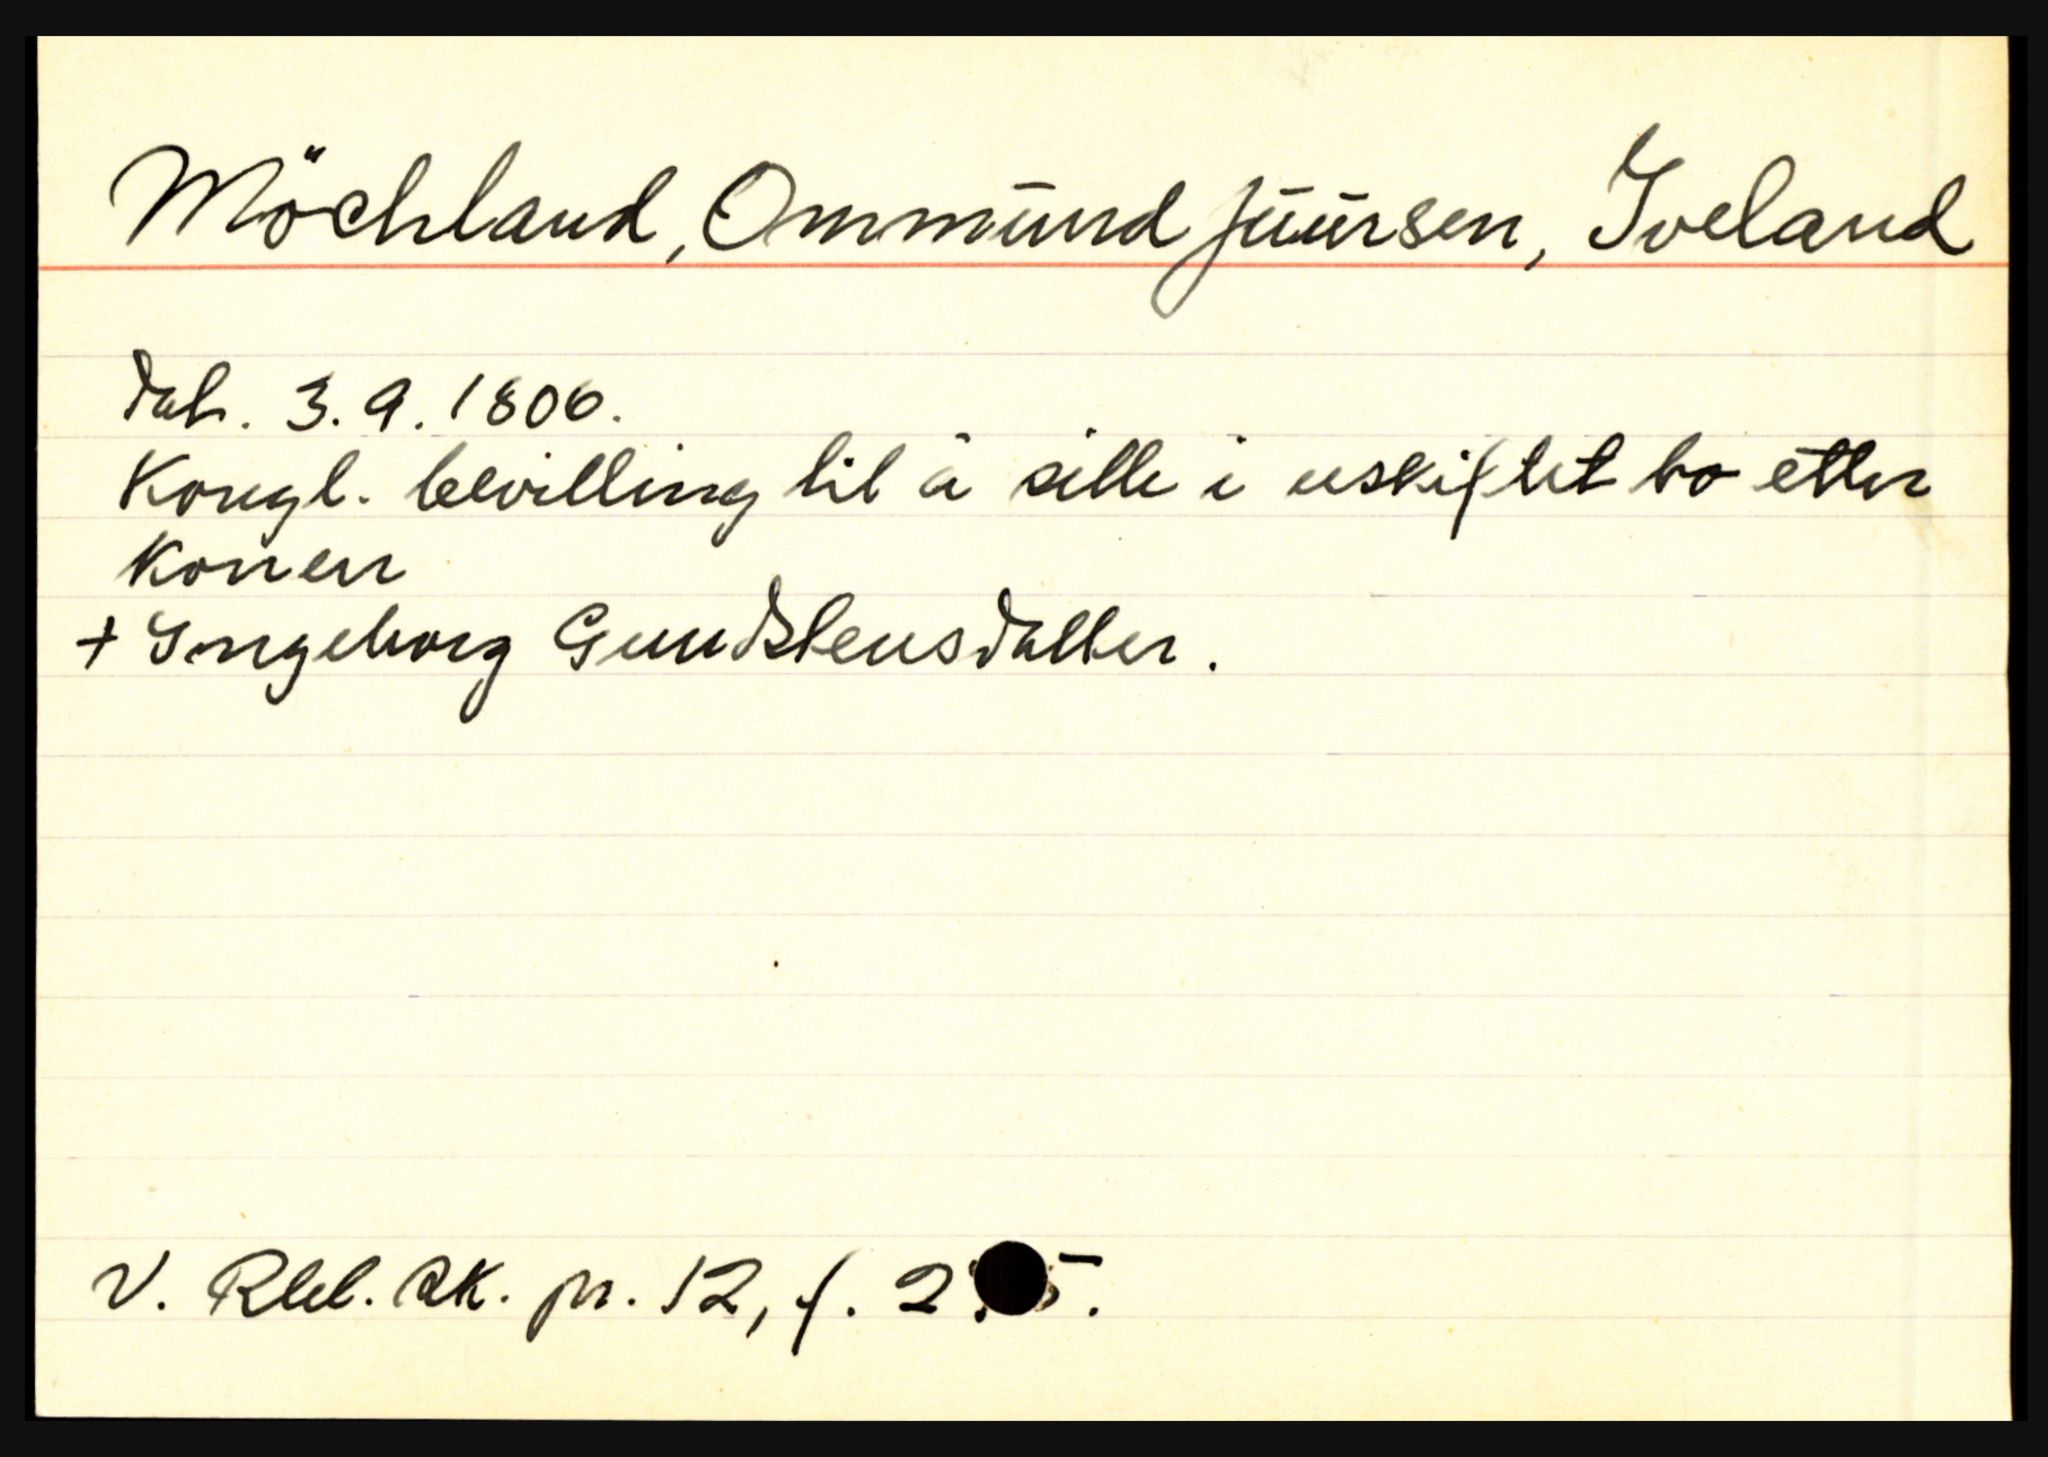 Möchland, Ommund Juursen, Iveland
dat. 3.9.1806.
Kongl. bevilling til å sitte i uskiftet bo etter
konen
+ Ingeborg Gundstensdatter.
V. Rbd. sk. pr. 12, f.